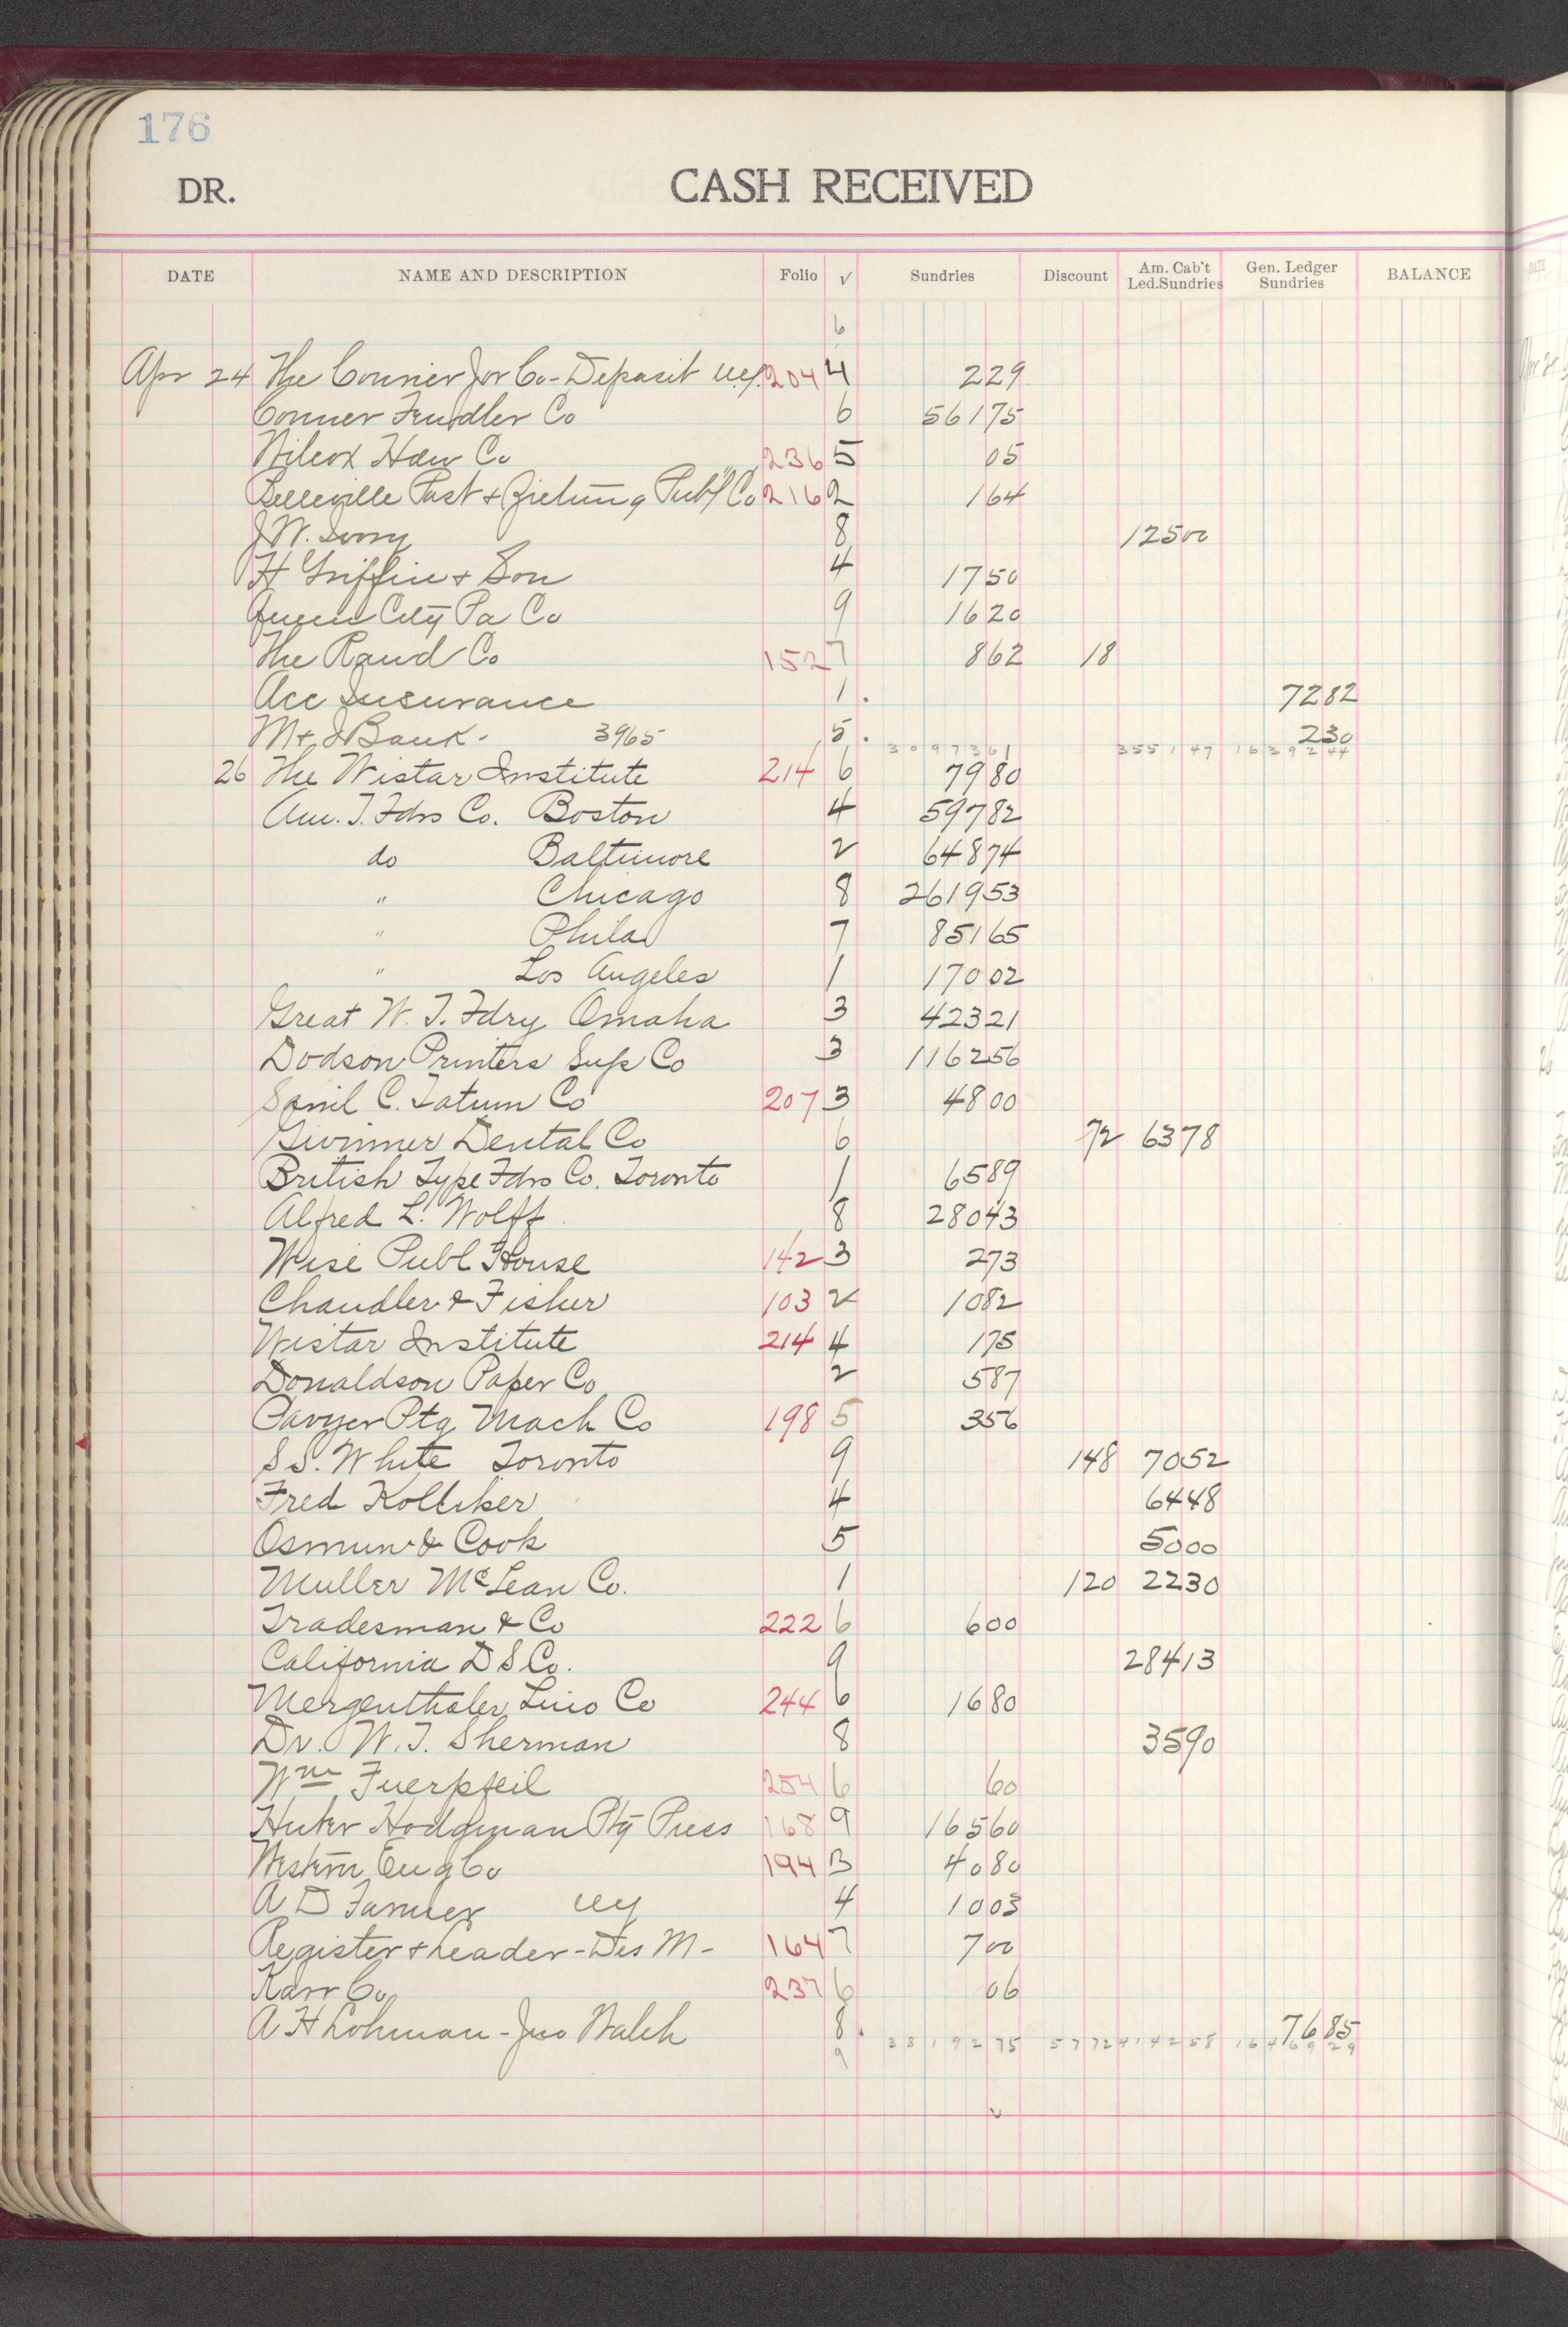 176
DR. CASH RECEIVED
DATE NAME AND DESCRIPTION Folio √ Sundries Discount Am. Cab't Led. Sundries Gen. Ledger Sundries BALANCE
6
Apr 24 The Courier Jor Co - Deposit 204 4 229
Conner Fendler Co 6 56175
Wilcox Co 236 5 05
Belleville Post & Publ Co 216 2 164
J W. Ivory 8 12500
H Griffin & Son 4 1750
Queen City Pa Co 9 1620
The Rand Co 152 7 862 18
Acc Insurance 1 . 7282
Bank - 3965 5 . 230
3097361 355147 1639244
26 The Wistar Institute 214 6 7980
Am. T. Fdrs Co. Boston 4 59782
do Baltimore 2 64874
" Chicago 8 261953
" Phila 7 85165
" Los Angeles 1 17002
Great W. T. Fdry Omaha 3 42321
Dodson Printers Sup Co 3 116256
Saml C. Tatum Co 207 3 4800
Dental Co 6 72 6378
British Type Fdrs Co. Toronto 1 6589
Alfred L. Wolff 8 28043
Wise Publ House 142 3 273
Chandler & Fisher 103 2 1082
Wistar Institute 214 4 175
Donaldson Paper Co 2 587
Ptg Mach Co 198 5 356
S S. White Toronto 9 148 7052
Fred Kolliker 4 6448
Osmun & Cook 5 5000
Muller McLean Co. 1 120 2230
Tradesman & Co 222 6 600
California D S Co. 9 28413
Mergenthaler Lino Co 244 6 1680
Dr. W. T. Sherman 8 3590
Wm Fuerpfeil 254 6 60
Hodgman Ptg Press 168 9 16560
Western Eng Co 194 3 4080
A D Farmer 4 1003
Register & Leader - Des M - 164 7 700
Karr Co 237 6 06
A H Lohman - Jno Walsh 8 . 7685
3819275 5772 414258 1646929
9